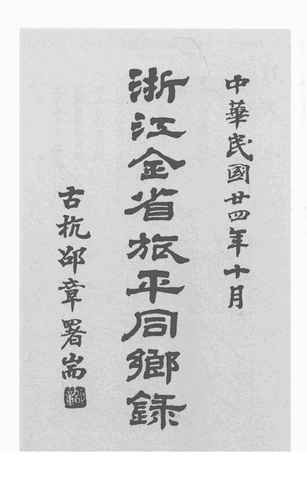 中華民國廿四年十月
浙江全省旅平同鄉錄
古杭邵章署耑